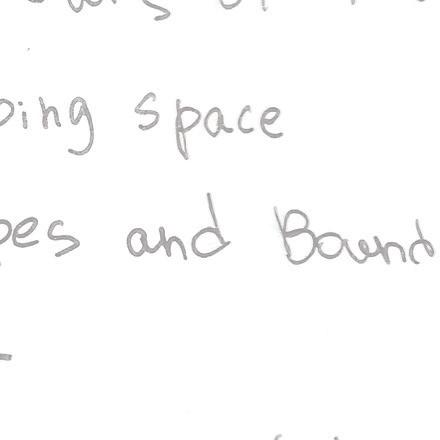 ping space
pes and Bound